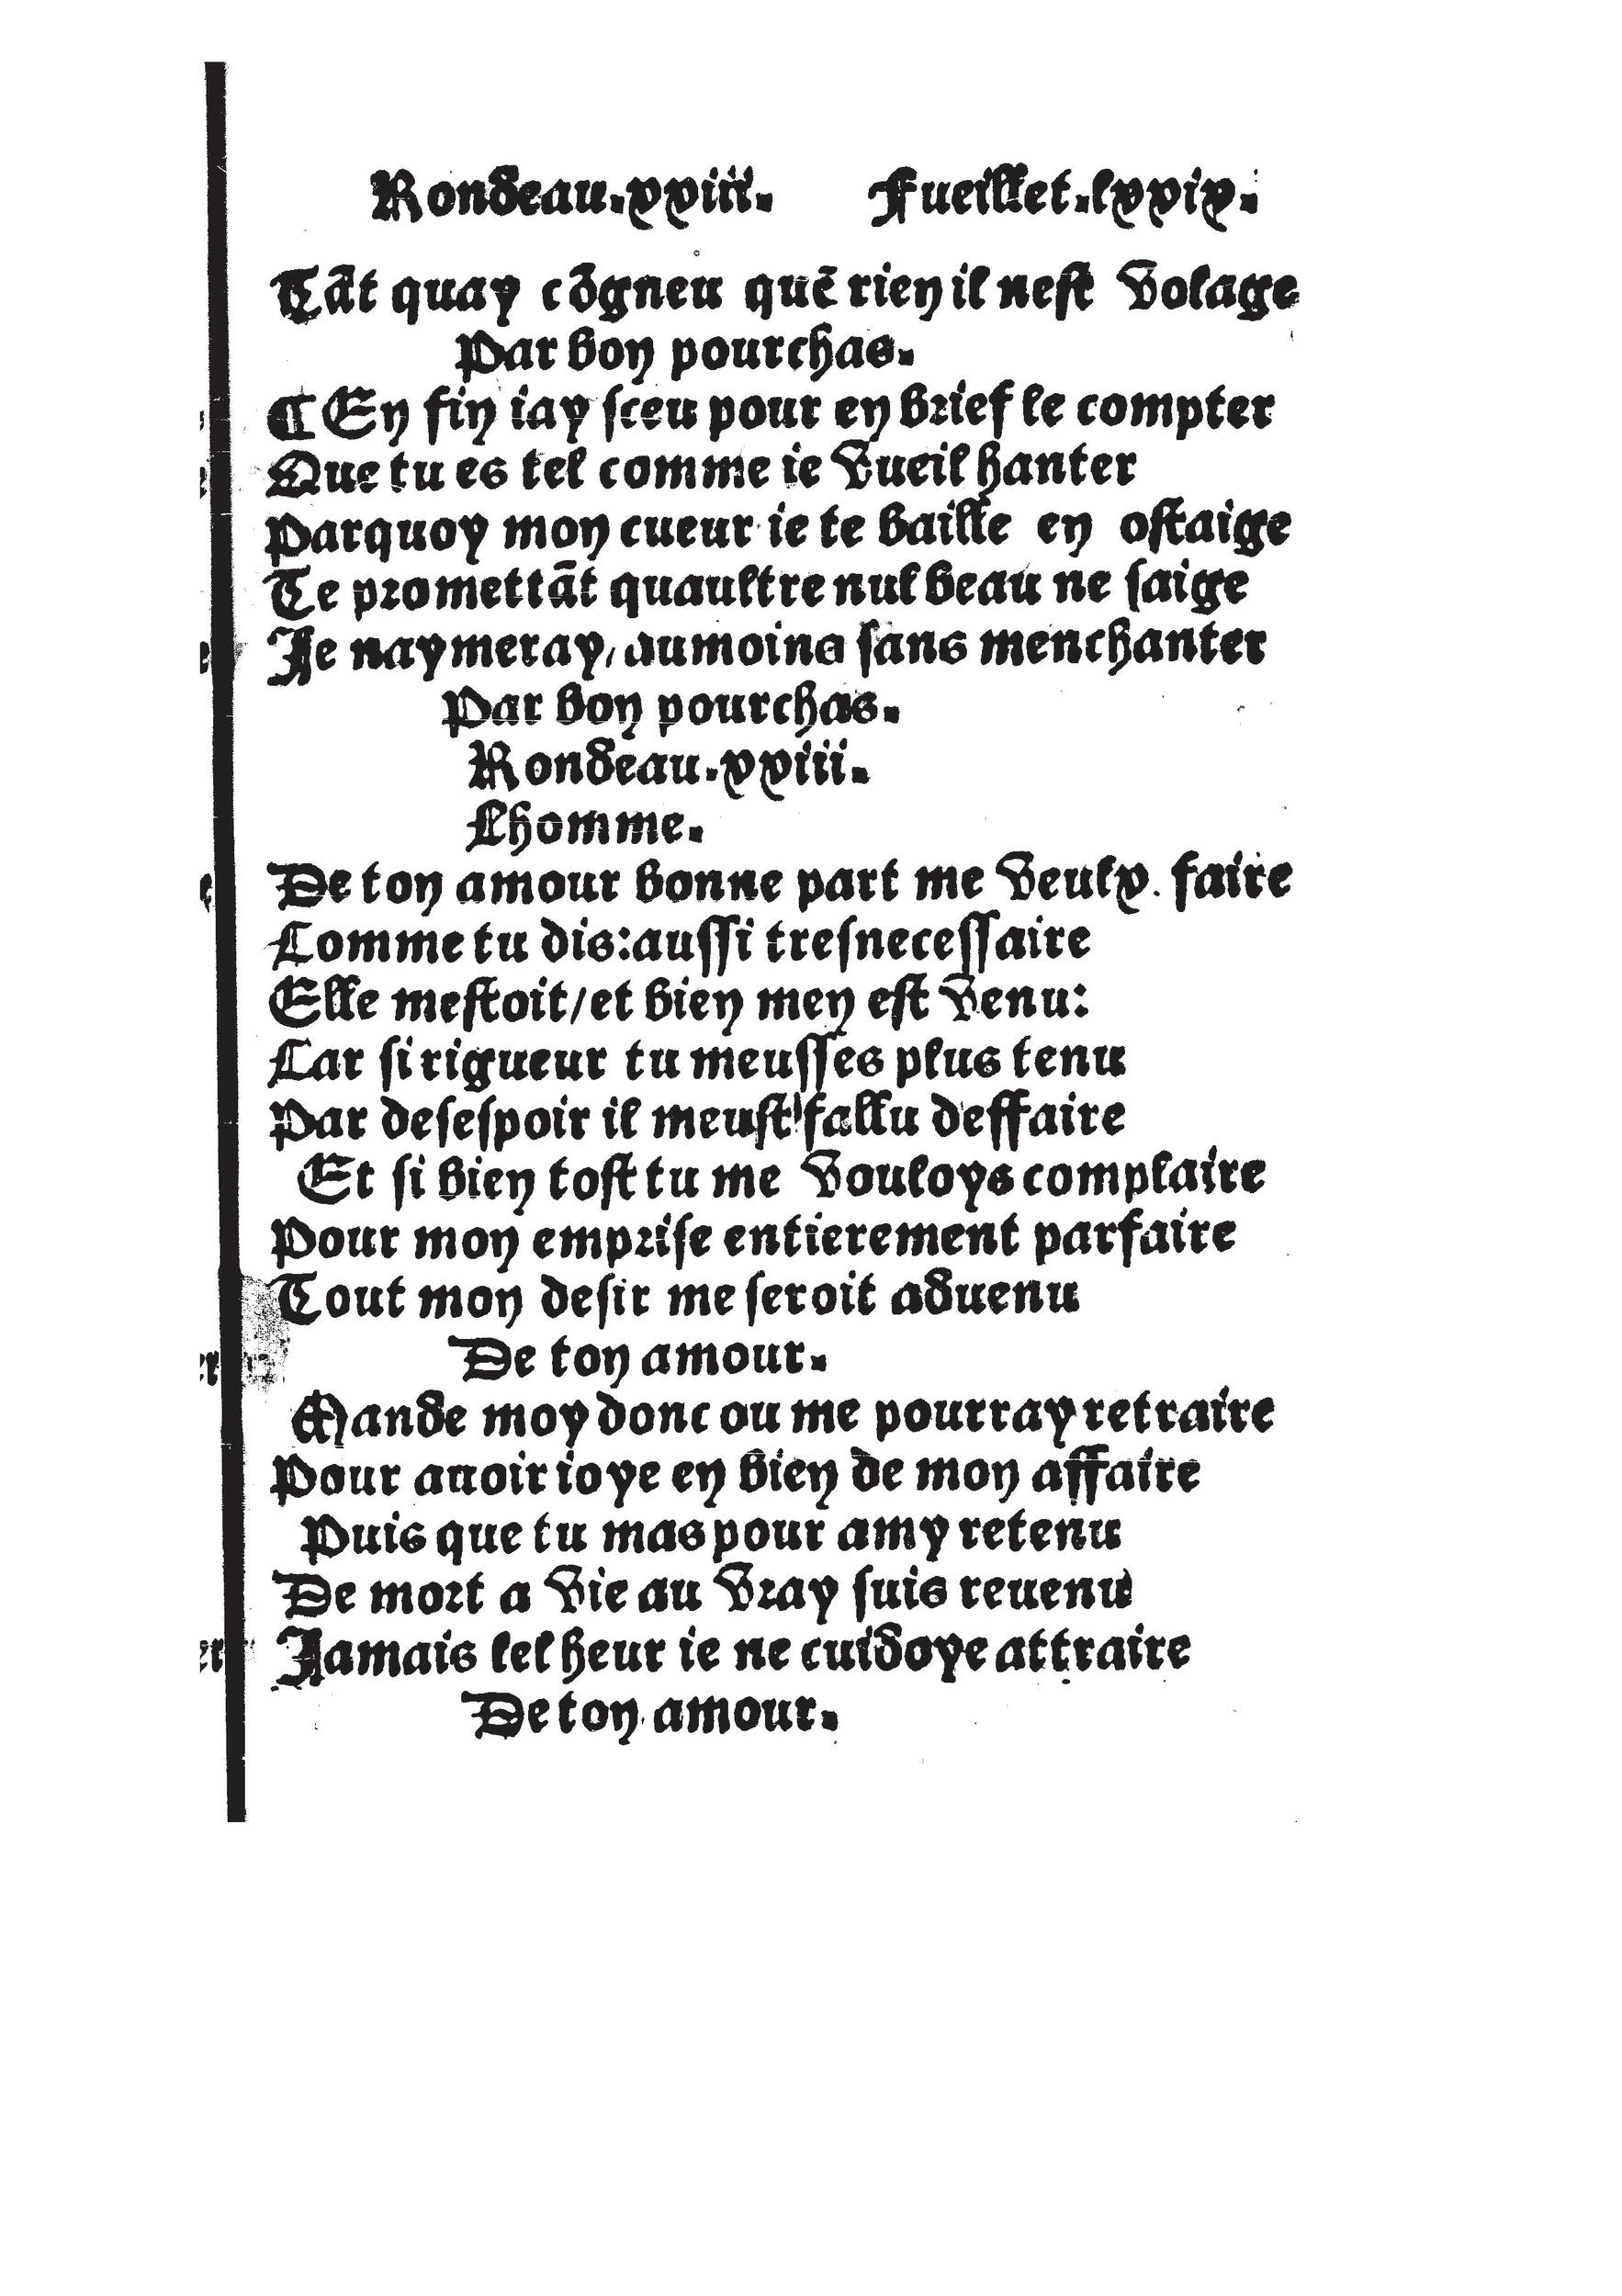 Rondeau.xxiii. Fueillet.lxxix.
Tāt quay cōgneu quē rien il nest volage
Par bon pourchas.
¶ En fin iay sceu pour en brief le compter
Que tu es tel comme ie vueil hanter
Parquoy mon cueur ie te baille en ostaige
Te promettāt quaultre nul beau ne saige
Je naymeray/aumoins sans menchanter
Par bon pourchas.
Rondeau.xxiii.
Lhomme.
De ton amour bonne part me veulx faire
Comme tu dis:aussi tresnecessaire
Elle mestoit/et bien men est venu:
Car si rigueur tu meusses plus tenu
Par desespoir il meust fallu deffaire
Et si bien tost tu me vouloys complaire
Pour mon emprise entierement parfaire
Tout mon desir me seroit aduenu
De ton amour.
Mande moy donc ou me pourray retraire
Pour auoir ioye en bien de mon affaire
Puis que tu mas pour amy retenu
De mort a vie au vray suis reuenu
Jamais lel heur ie ne cuidoye attraire
De ton amour.